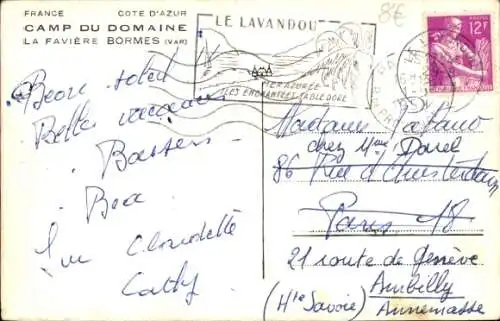 FRANCE COTE D'AZUR
CAMP DU DOMAINE
LA FAVIÈRE BORMES (VAR)
8€
LE LAVANDOU
MER AZURÉE
ILES ENCHANTÉES SABLE DORÉ
12F
Beau soleil
Belles vacances
Baisers
Bea
Claudette
Cathy
Madame
chez Mme
86 Rue d'Amsterdam
Paris 18
21 route de Genève
Ambilly
(Hte Savoie) Annemasse